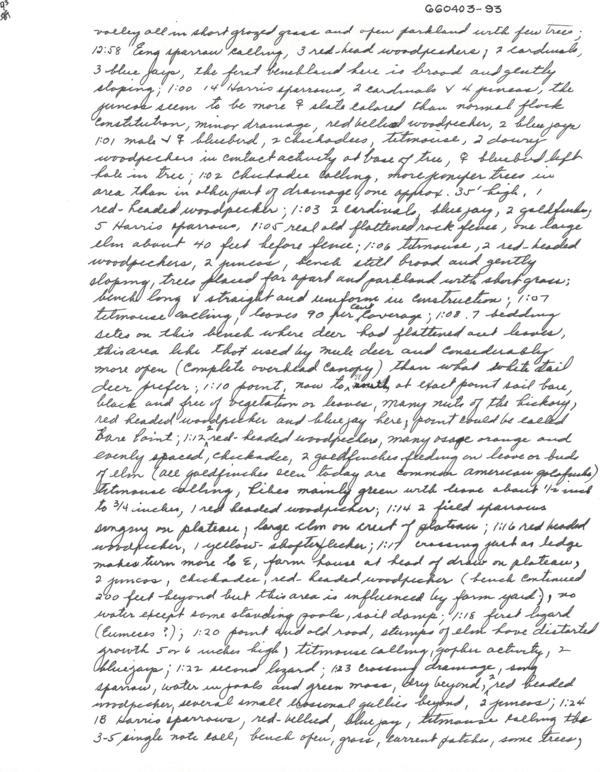 GGO403-93
valley all in short grazed grass and open parkland with few trees;
12:58 Eng sparrow calling, 3 red-head woodpeckers; 2 cardinals,
3 blue jays, the first benchland here is broad and gently
sloping; 1:00 14 Harris sparrows, 2 cardinals & 4 juncos, the
juncos seem to be more ♀ slate colored than normal flock
constitution, minor drainage, red bellied woodpecker, 2 blue jays
1:01 male & ♀ bluebird, 2 chickadees, titmouse, 2 downy
woodpeckers in contact activity at base of tree, ♀ bluebird left
hole in tree; 1:02 chickadee calling, more juniper trees in
area than in other part of drainage, one approx. 35' high, 1
red-headed woodpecker; 1:03 2 cardinals, blue jay, 2 goldfinches,
5 Harris sparrows, 1:05 real old flattened rock fence, one large
elm about 40 feet before fence; 1:06 titmouse, 2 red-headed
woodpeckers, 2 juncos, bench still broad and gently
sloping, trees placed far apart and parkland with short grass;
bench long & straight and uniform in construction; 1:07
titmouse calling, leaves 90 per cent coverage; 1:08 7 bedding
sites on this bench where deer had flattened out leaves,
this area like that used by mule deer and considerably
more open (complete overhead canopy) than what white tail
deer prefer; 1:10 point, now to south, at exact point soil bare,
black and free of vegetation or leaves, many nuts of the hickory,
red headed woodpecker and blue jay here, point could be called
Bare Point; 1:12 2 red-headed woodpeckers, many osage orange and
evenly spaced, chickadee, 2 goldfinches feeding on leave or buds
of elm (all goldfinches seen today are common american goldfinch)
titmouse calling, Ribes mainly green with leave about 1/2 inch
to 3/4 inches, 1 red headed woodpecker; 1:14 2 field sparrows
singing on plateau, large elm on crest of plateau; 1:16 red headed
woodpecker, 1 yellow-shafted flicker; 1:17 crossing just as ledge
makes turn more to E, farm house at head of draw on plateau,
2 juncos, chickadee, red-headed woodpecker (bench continued
200 feet beyond but this area is influenced by farm yard), no
water except some standing pools, soil damp; 1:18 first lizard
(Eumeces ?); 1:20 point and old road, stumps of elm have distorted
growth 5 or 6 inches high, titmouse calling, gopher activity, 2
bluejays; 1:22 second lizard; 1:23 crossing drainage, song
sparrow, water in pools and green moss, dry beyond, 2 red headed
woodpecker, several small erosional gullies beyond, 2 juncos; 1:24
18 Harris sparrows, red-bellied, blue jay, titmouse calling the
3-5 single note call, bench open, grass, currant patches, some trees,